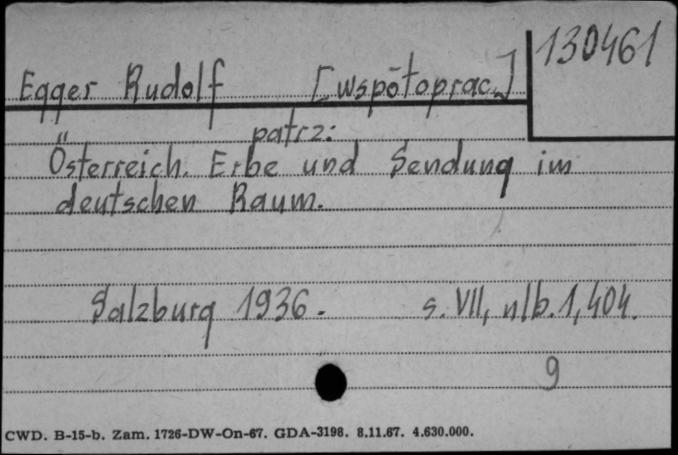 130461
Egger Rudolf [współoprac.]
patrz:
Österreich. Erbe und Sendung im
deutschen Raum.
Salzburg 1936. s. VII, nlb. 1, 404.
9
CWD. B-15-b. Zam. 1726-DW-On-67. GDA-3198. 8.11.67. 4.630.000.